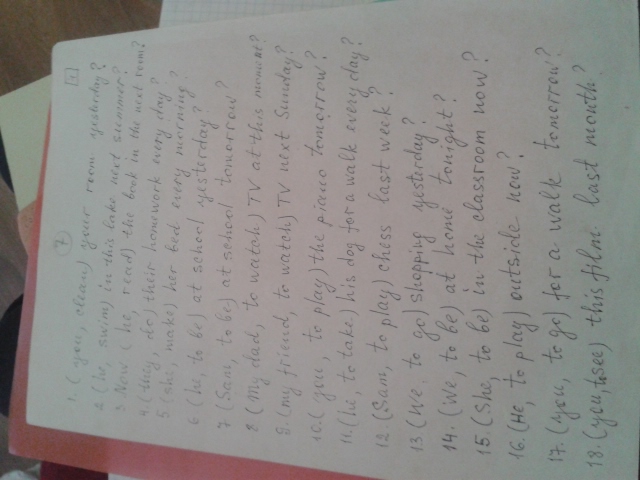 7
1. (you, clean) your room yesterday?
2 (he, swim) in this lake next summer?
3. Now (he, read) the book in the next room?
4. (they, do) their homework every day?
5. (she, make) her bed every morning?
6 (he, to be) at school yesterday?
7 (Sam, to be) at school tomorrow?
8 (My dad, to watch) TV at this moment?
9. (my friend, to watch) TV next Sunday?
10. (you, to play) the piano tomorrow?
11. (he, to take) his dog for a walk every day?
12 (Sam, to play) chess last week?
13 (We, to go) shopping yesterday?
14. (We, to be) at home tonight?
15. (She, to be) in the classroom now?
16. (He, to play) outside now?
17. (you, to go) for a walk tomorrow?
18. (you, to see) this film last month?